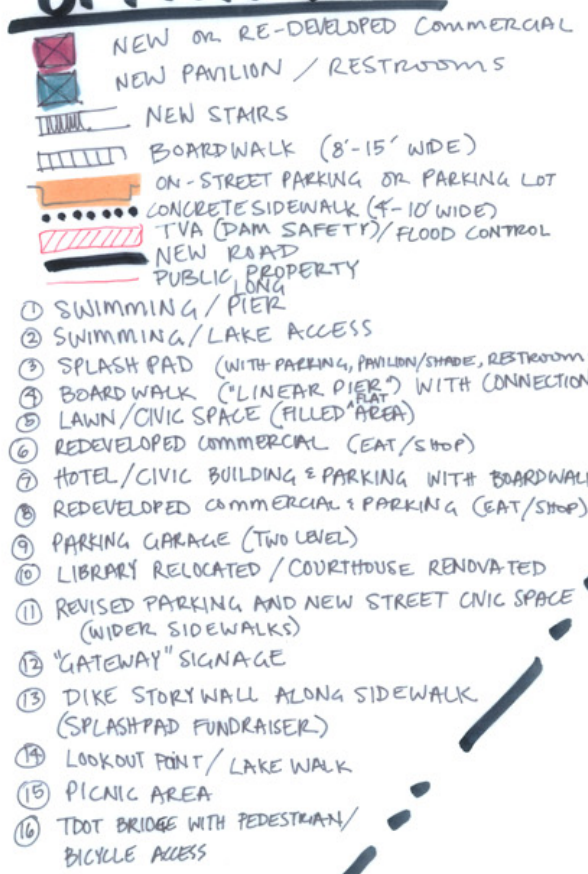 NEW OR RE-DEVELOPED COMMERCIAL
NEW PAVILION / RESTROOMS
NEW STAIRS
BOARDWALK (8'-15' WIDE)
ON-STREET PARKING OR PARKING LOT
CONCRETE SIDEWALK (4-10' WIDE)
TVA (DAM SAFETY)/FLOOD CONTROL
NEW ROAD
PUBLIC PROPERTY
LONG
① SWIMMING/PIER
② SWIMMING/LAKE ACCESS
③ SPLASH PAD (WITH PARKING, PAVILION/SHADE, RESTROOM
④ BOARDWALK ("LINEAR PIER") WITH CONNECTION
FLAT
⑤ LAWN/CIVIC SPACE (FILLED ^ AREA)
⑥ REDEVELOPED COMMERCIAL (EAT/SHOP)
⑦ HOTEL/CIVIC BUILDING & PARKING WITH BOARDWALK
⑧ REDEVELOPED COMMERCIAL & PARKING (EAT/SHOP)
⑨ PARKING GARAGE (TWO LEVEL)
⑩ LIBRARY RELOCATED / COURTHOUSE RENOVATED
⑪ REVISED PARKING AND NEW STREET CIVIC SPACE
(WIDER SIDEWALKS)
⑫ "GATEWAY" SIGNAGE
⑬ DIKE STORYWALL ALONG SIDEWALK
(SPLASHPAD FUNDRAISER)
⑭ LOOKOUT POINT/LAKE WALK
⑮ PICNIC AREA
⑯ TDOT BRIDGE WITH PEDESTRIAN/
BICYCLE ACCESS